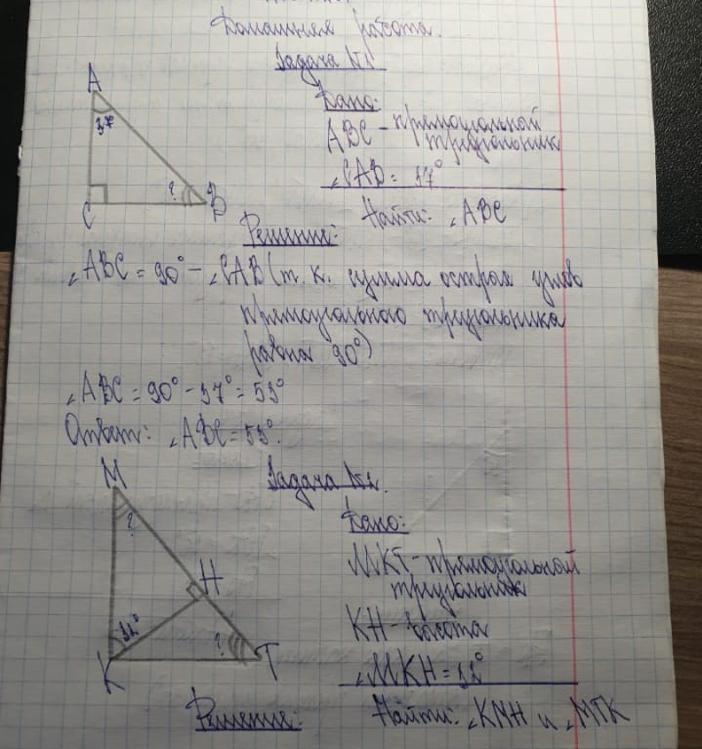 Домашняя работа.
Задача №1
A
37°
C
?
B
Дано:
ABC - прямоугольный
треугольник
∠CAB = 37°
Найти: ∠ABC
Решение:
∠ABC = 90° - ∠CAB (т. к. сумма острых углов
прямоугольного треугольника
равна 90°)
∠ABC = 90° - 37° = 53°
Ответ: ∠ABC = 53°.
Задача №2.
M
?
H
32°
?
K
T
Дано:
MKT - прямоугольный
треугольник
KH - высота
∠MKH = 32°
Найти: ∠KMH и ∠MTK
Решение: